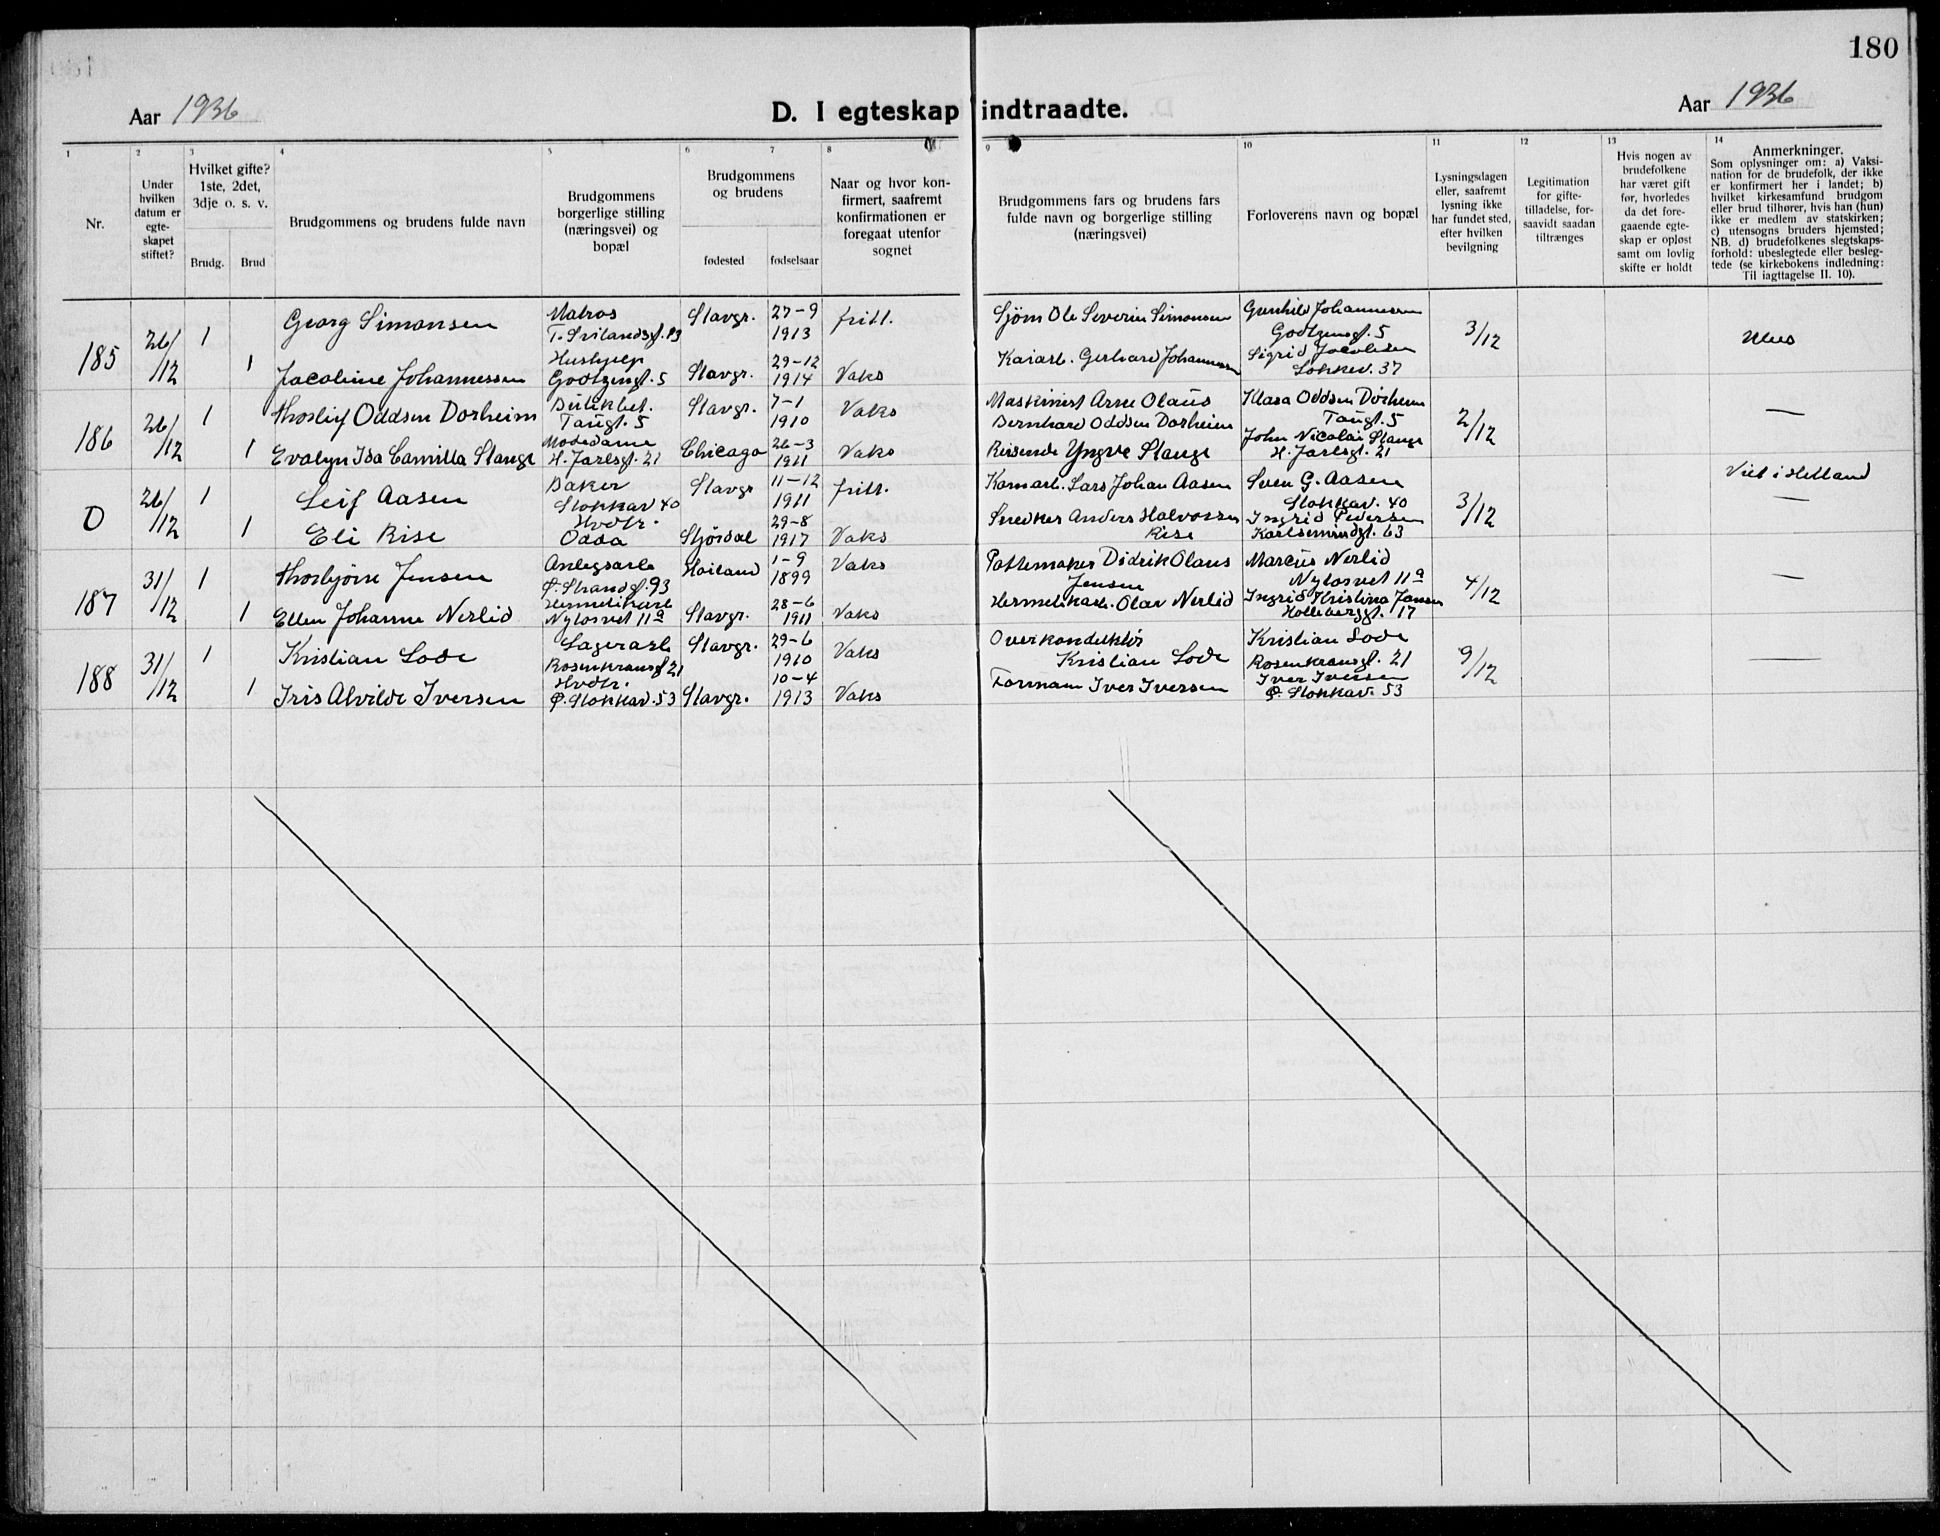 180
Aar 1936
D. I egteskap indtraadte.
Aar 1936
1 2 3 4 5 6 7 8 9 10 11 12 13 14
Nr.
Under hvilken datum er egte-skapet stiftet?
Hvilket gifte? 1ste, 2det, 3dje o. s. v.
Brudg. Brud
Brudgommens og brudens fulde navn
Brudgommens borgerlige stilling (næringsvei) og bopæl
Brudgommens og brudens
fødested fødselsaar
Naar og hvor kon-firmert, saafremt konfirmationen er foregaat utenfor sognet
Brudgommens fars og brudens fars fulde navn og borgerlige stilling (næringsvei)
Forloverens navn og bopæl
Lysningsdagen eller, saafremt lysning ikke har fundet sted, efter hvilken bevilgning
Legitimation for gifte-tilladelse, for-saavidt saadan tiltrænges
Hvis nogen av brudefolkene har været gift før, hvorledes da det fore-gaaende egte-skap er opløst samt om lovlig skifte er holdt
Anmerkninger.
Som oplysninger om: a) Vaksi-nation for de brudefolk, der ikke er konfirmert her i landet; b) hvilket kirkesamfund brudgom eller brud tilhører, hvis han (hun) ikke er medlem av statskirken; c) utensogns bruders hjemsted; NB. d) brudefolkenes slegtskaps-forhold: ubeslegtede eller besleg-tede (se kirkebokens indledning: Til iagttagelse II. 10).
185 26/12 1 Georg Simonsen Matros Stavgr. 27-9 1913 fritl. Sjøm Ole Severin Simonsen Gunhild Johannessen Godtzensgt. 5 3/12
1 Jacobine Johannessen Hushjelp Godtzengt. 5 Stavgr. 29-12 1914 Vaks Kaiarb. Gerhard Johannessen Sigrid Jacobsen 37
186 26/12 1 Thorleif Oddsen Dorheim Butikbet. Taugt. 5 Stavgr. 7-1 1910 Vaks Maskinist Arne Olaus Bernhard Oddsen Dorheim Klara Oddsen Dorheim Taugt. 5 2/12 —
1 Evalyn Isa Camilla Stange Modedame H. Jarlsgt. 21 Chicago 26-3 1911 Vaks Reisende Yngve Stange John Nicolai Stange H. Jarlsgt. 21
0 26/12 1 Leif Aasen Baker Stokkav 40 Stavgr 11-12 1911 fritl. Komarb. Lars Johan Aasen Sven G. Aasen Stokkav. 40 3/12 Viet i Hetland —
1 Eli Rise Hvdtr. Odda Stjørdal 29-8 1917 Vaks Snedker Anders Halvorsen Rise Ingrid Pedersen Karlsemindgt. 63
187 31/12 1 Thorbjørn Jensen Anlegsarb Ø. Strandgt. 93 Høiland 1-9 1899 Vaks Pottemaker Didrik Olaus Jensen Marcus Nerlid Nylosvet 11a 4/12 —
1 Ellen Johanne Nerlid Hermetikarb Nylosvet 11a Stavgr. 28-6 1911 Vaks Hermetikarb. Olav Nerlid Ingrid Kristina Jansen Holleberggt. 17
188 31/12 1 Kristian Lode Lagerarb Rosenkransgt 21 Stavgr. 29-6 1910 Vaks Overkonduktør Kristian Lode Kristian Lode Rosenkransgt. 21 9/12 —
1 Iris Alvilde Iversen Hvdtr. Ø. Stokkav. 53 Stavgr. 10-4 1913 Vaks Formann Iver Iversen Iver Iversen Ø. Stokkav. 53